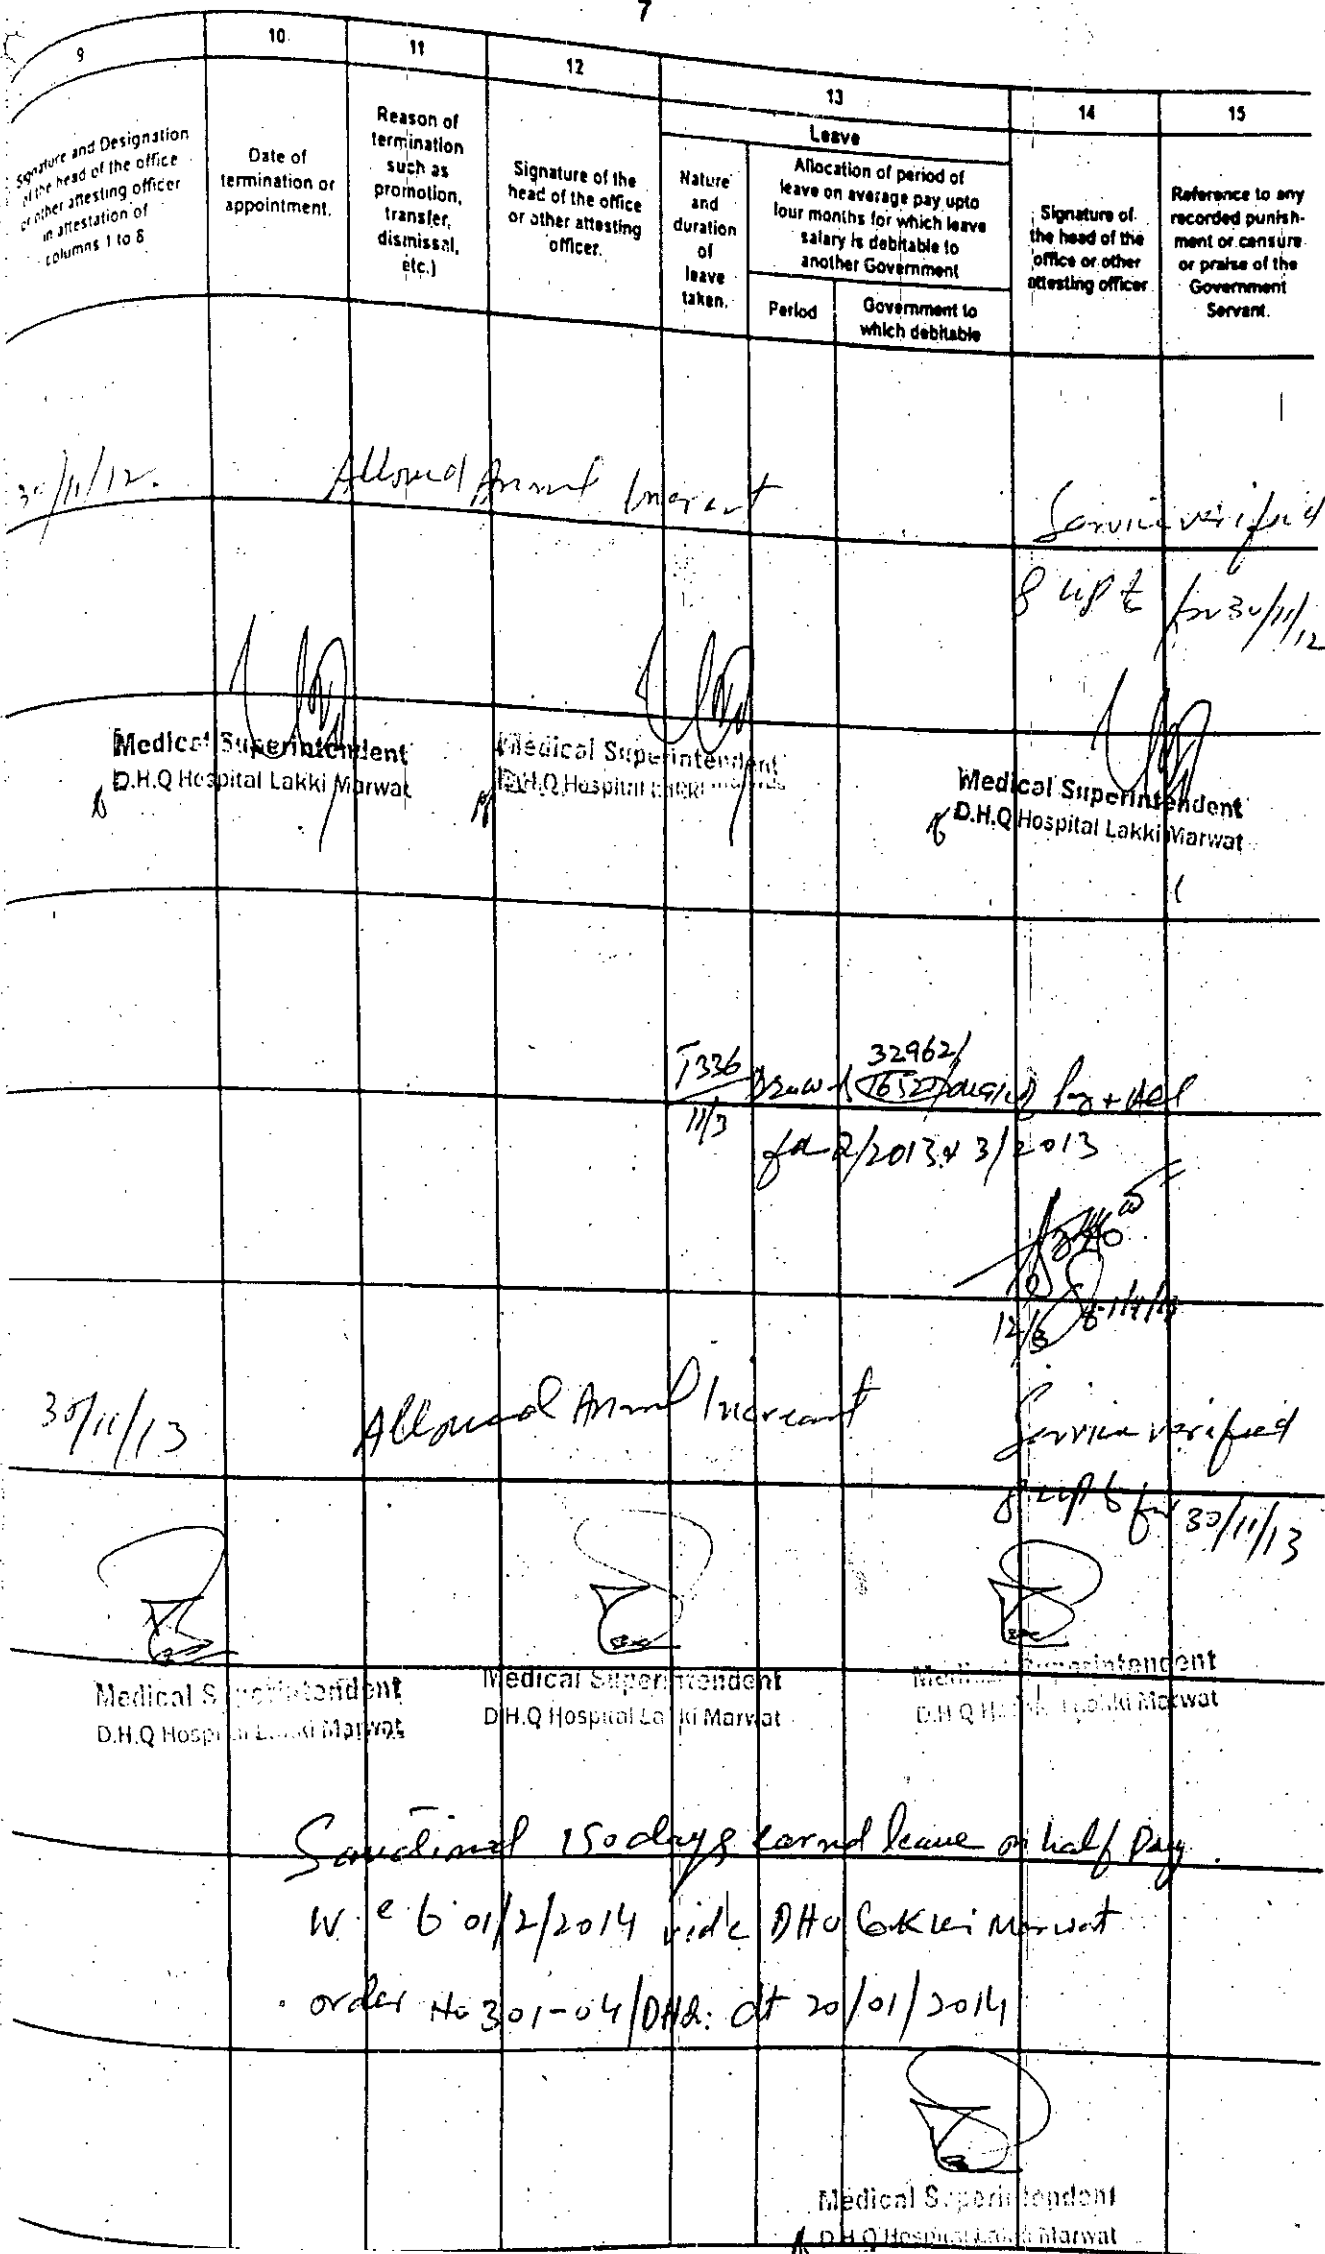 7
9 10 11 12 13 14 15
Signature and Designation
of the head of the office
or other attesting officer
in attestation of
columns 1 to 8
Date of
termination or
appointment.
Reason of
termination
such as
promotion,
transfer,
dismissal,
etc.)
Signature of the
head of the office
or other attesting
officer.
Leave
Nature
and
duration
of
leave
taken.
Allocation of period of
leave on average pay upto
four months for which leave
salary is debitable to
another Government
Period
Government to
which debitable
Signature of
the head of the
office or other
attesting officer
Reference to any
recorded punish-
ment or censure
or praise of the
Government
Servant.
30/11/12. Allowed Annual Increment Service verified
upto for 30/11/12
Medical Superintendent
D.H.Q Hospital Lakki Marwat
Medical Superintendent
D.H.Q Hospital Lakki Marwat
Medical Superintendent
D.H.Q Hospital Lakki Marwat
32962/
11/3
for 2/2013 & 3/2013
12/3
30/11/13 Allowed Annual Increment Service verified
upto for 30/11/13
Medical Superintendent
D.H.Q Hospital Lakki Marwat
Medical Superintendent
D.H.Q Hospital Lakki Marwat
Medical Superintendent
D.H.Q Hospital Lakki Marwat
Sanctioned 150 days earned leave on half Pay.
w.e.f 01/2/2014 vide DHO Lakki Marwat
order No 301-04/ dt 20/01/2014
Medical Superintendent
D.H.Q Hospital Lakki Marwat